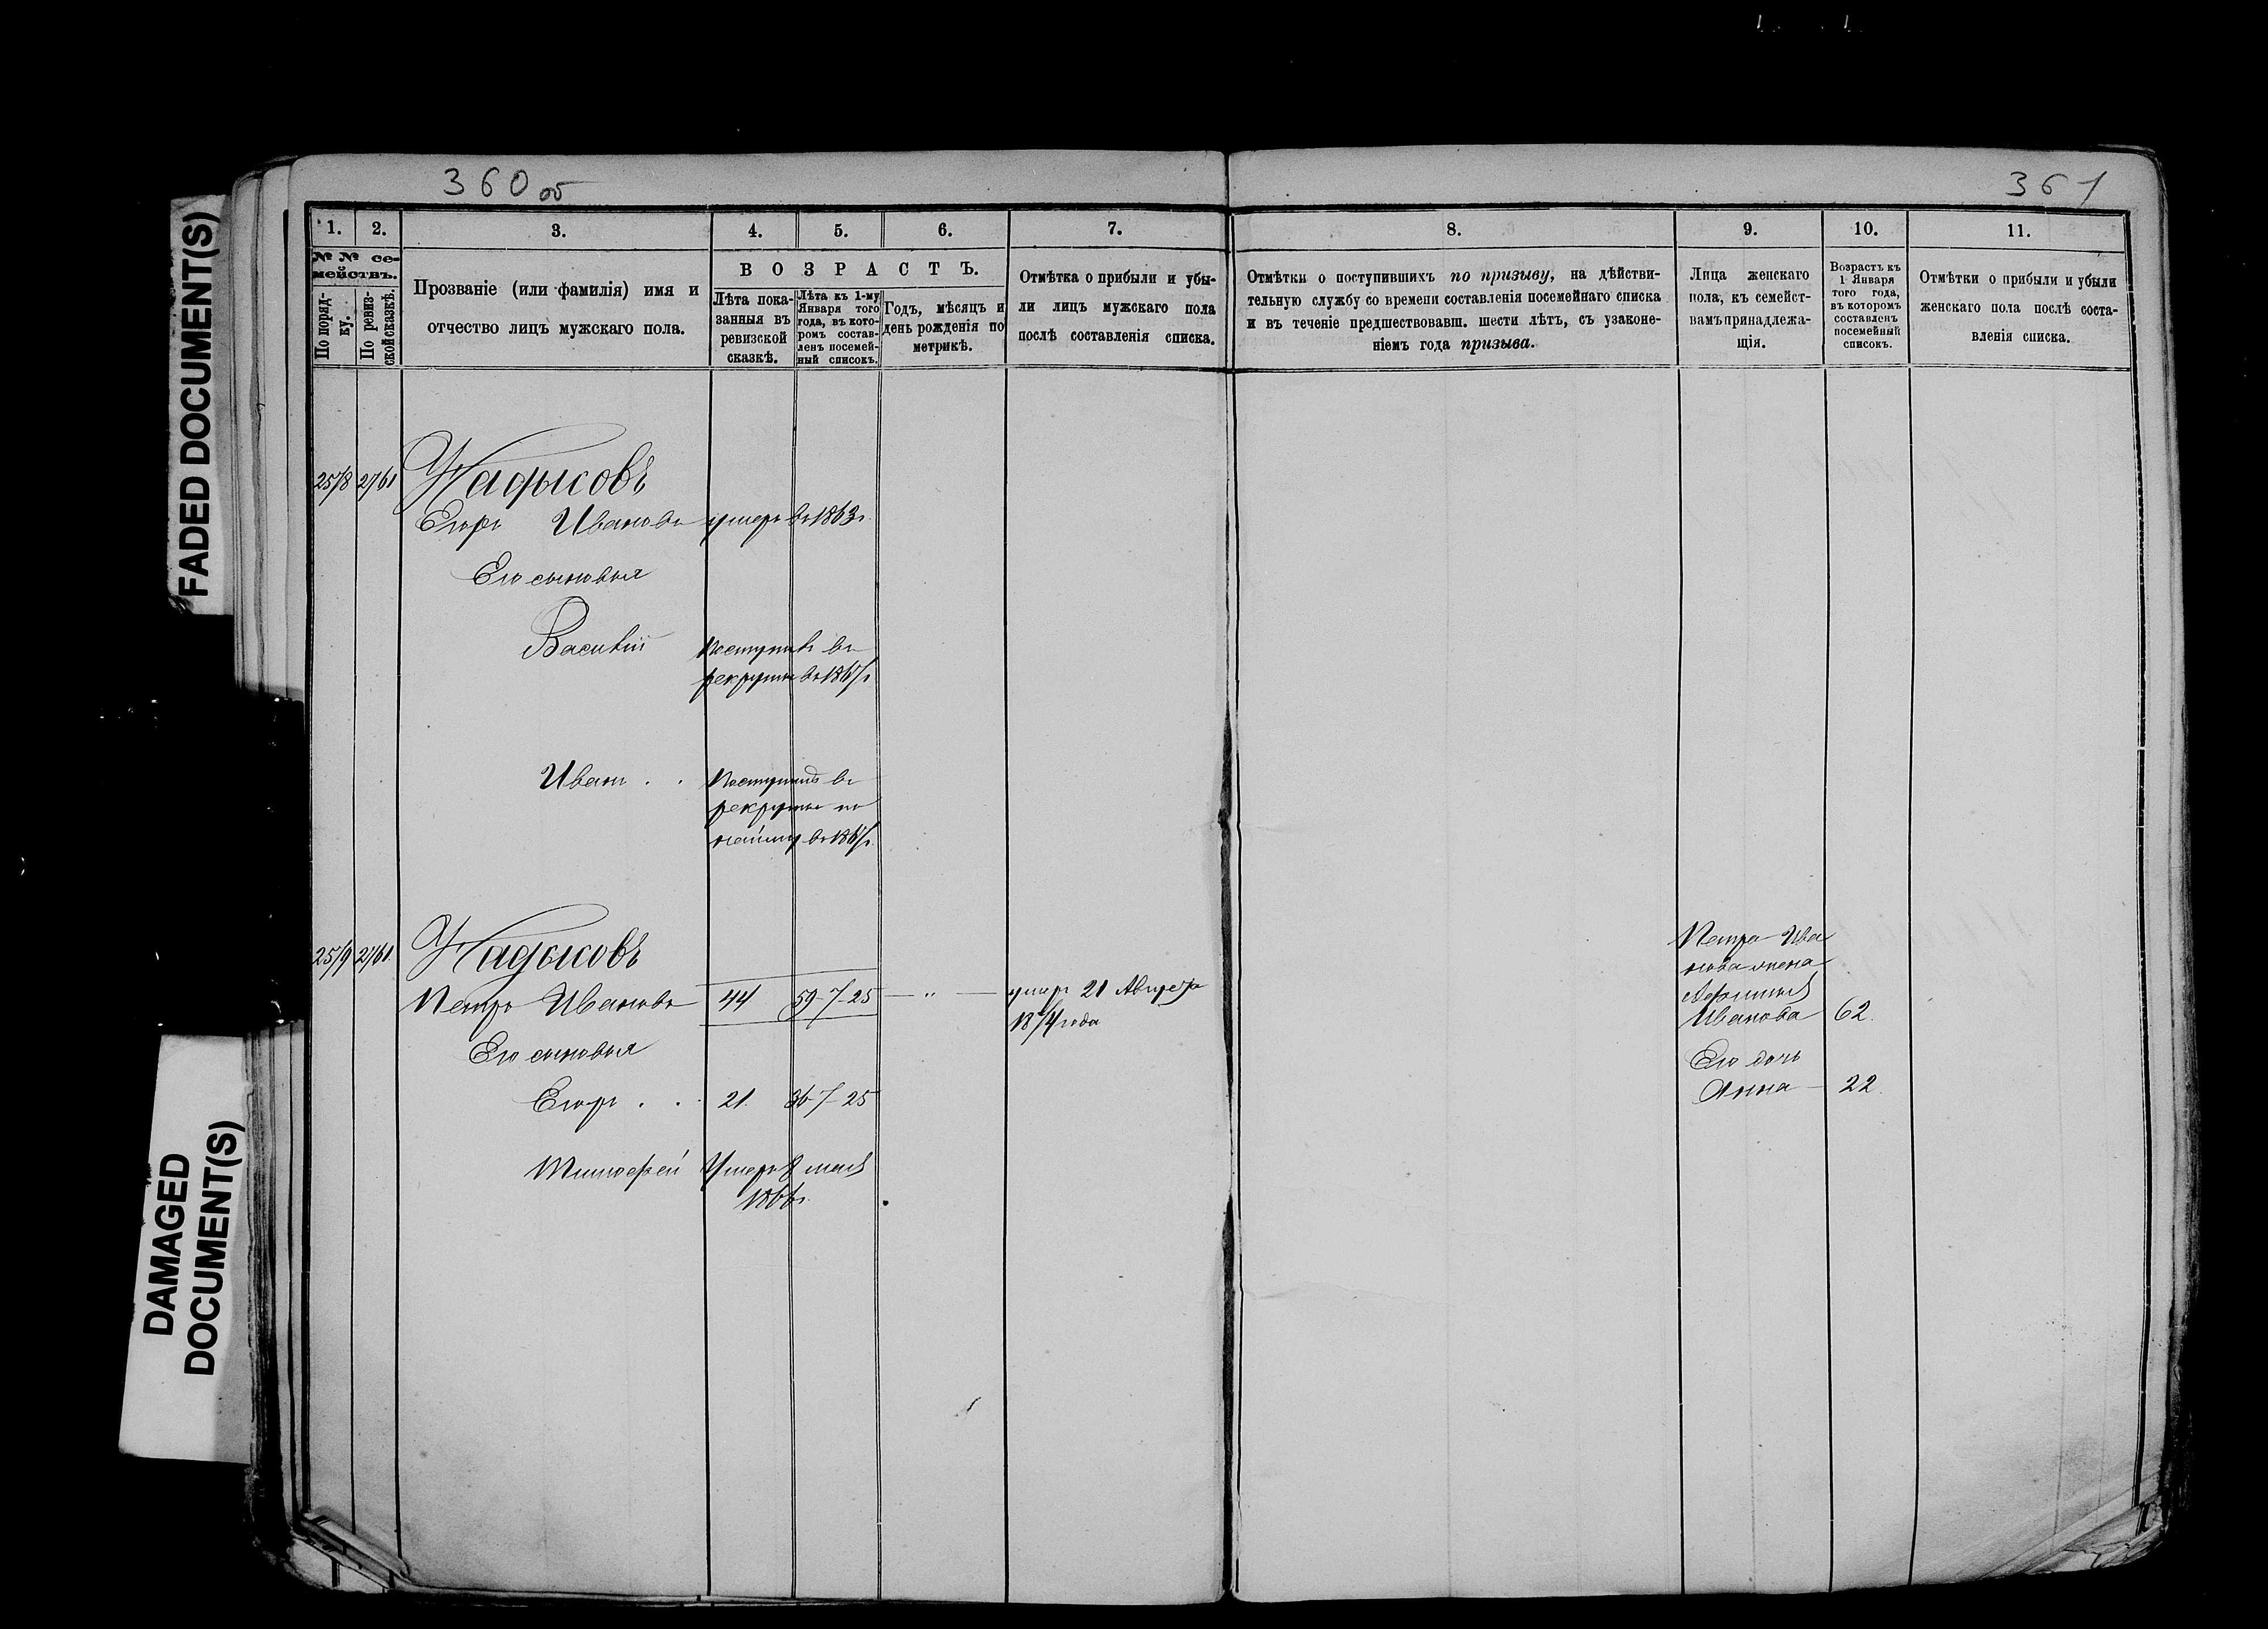 360 об
361
FADED DOCUMENT(S)
DAMAGED
DOCUMENT(S)
1. 2. 3. 4. 5. 6. 7. 8. 9. 10. 11.
№ № се-
мействъ.
По поряд-
ку.
По ревиз-
ской сказкѣ.
Прозваніе (или фамилія) имя и
отчество лицъ мужскаго пола.
ВОЗРАСТЪ.
Лѣта пока-
занныя въ
ревизской
сказкѣ.
Лѣта къ 1-му
Января того
года, въ кото-
ромъ состав-
ленъ посемей-
ный списокъ.
Годъ, мѣсяцъ и
день рожденія по
метрикѣ.
Отмѣтка о прибыли и убы-
ли лицъ мужскаго пола
послѣ составленія списка.
Отмѣтки о поступившихъ по призыву, на дѣйстви-
тельную службу со времени составленія посемейнаго списка
и въ теченіе предшествовавш. шести лѣтъ, съ узаконе-
ніемъ года призыва.
Лица женскаго
пола, къ семейст-
вамъ принадлежа-
щія.
Возрастъ къ
1 Января
того года,
въ которомъ
составленъ
посемейный
списокъ.
Отмѣтки о прибыли и убыли
женскаго пола послѣ соста-
вленія списка.
Егоръ Ивановъ умеръ въ 1863г.
Его сыновья
Василій Поступилъ въ
рекруты въ
Иванъ . . Поступилъ въ
рекруты по
найму въ
Петръ Ивановъ 44 59-7-25 — " — умеръ 21
1874 года
Его сыновья
Егоръ . . 21. 36-7-25
Тимофей Умеръ 8 мая
1866г.
Петра Ива
нова жена
Ивановa 62.
Его дочь
Анна — 22.